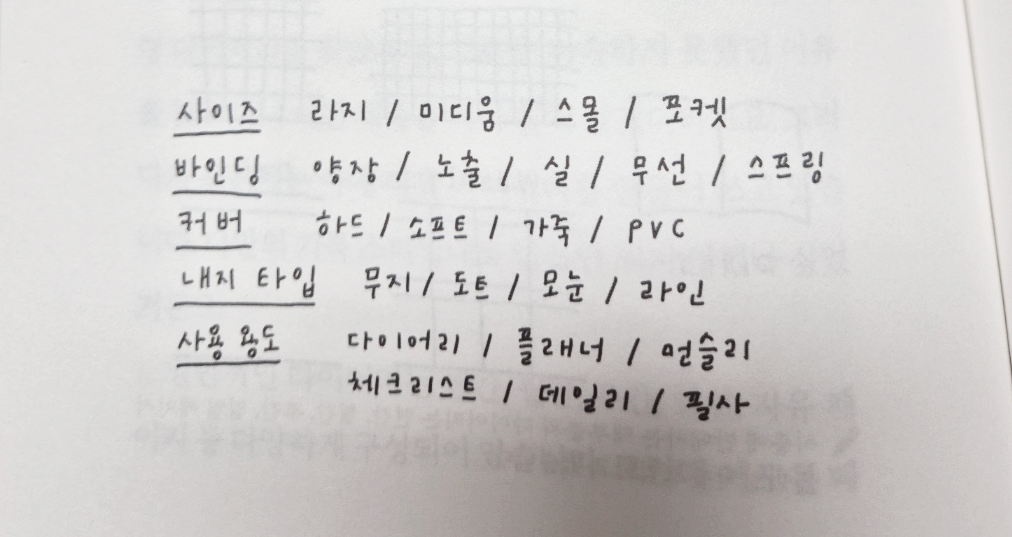 사이즈 라지 / 미디움 / 스몰 / 포켓
바인딩 양장 / 노출 / 실 / 무선 / 스프링
커버 하드 / 소프트 / 가죽 / PVC
내지 타입 무지 / 도트 / 모눈 / 라인
사용 용도 다이어리 / 플래너 / 먼슬리
체크리스트 / 데일리 / 필사